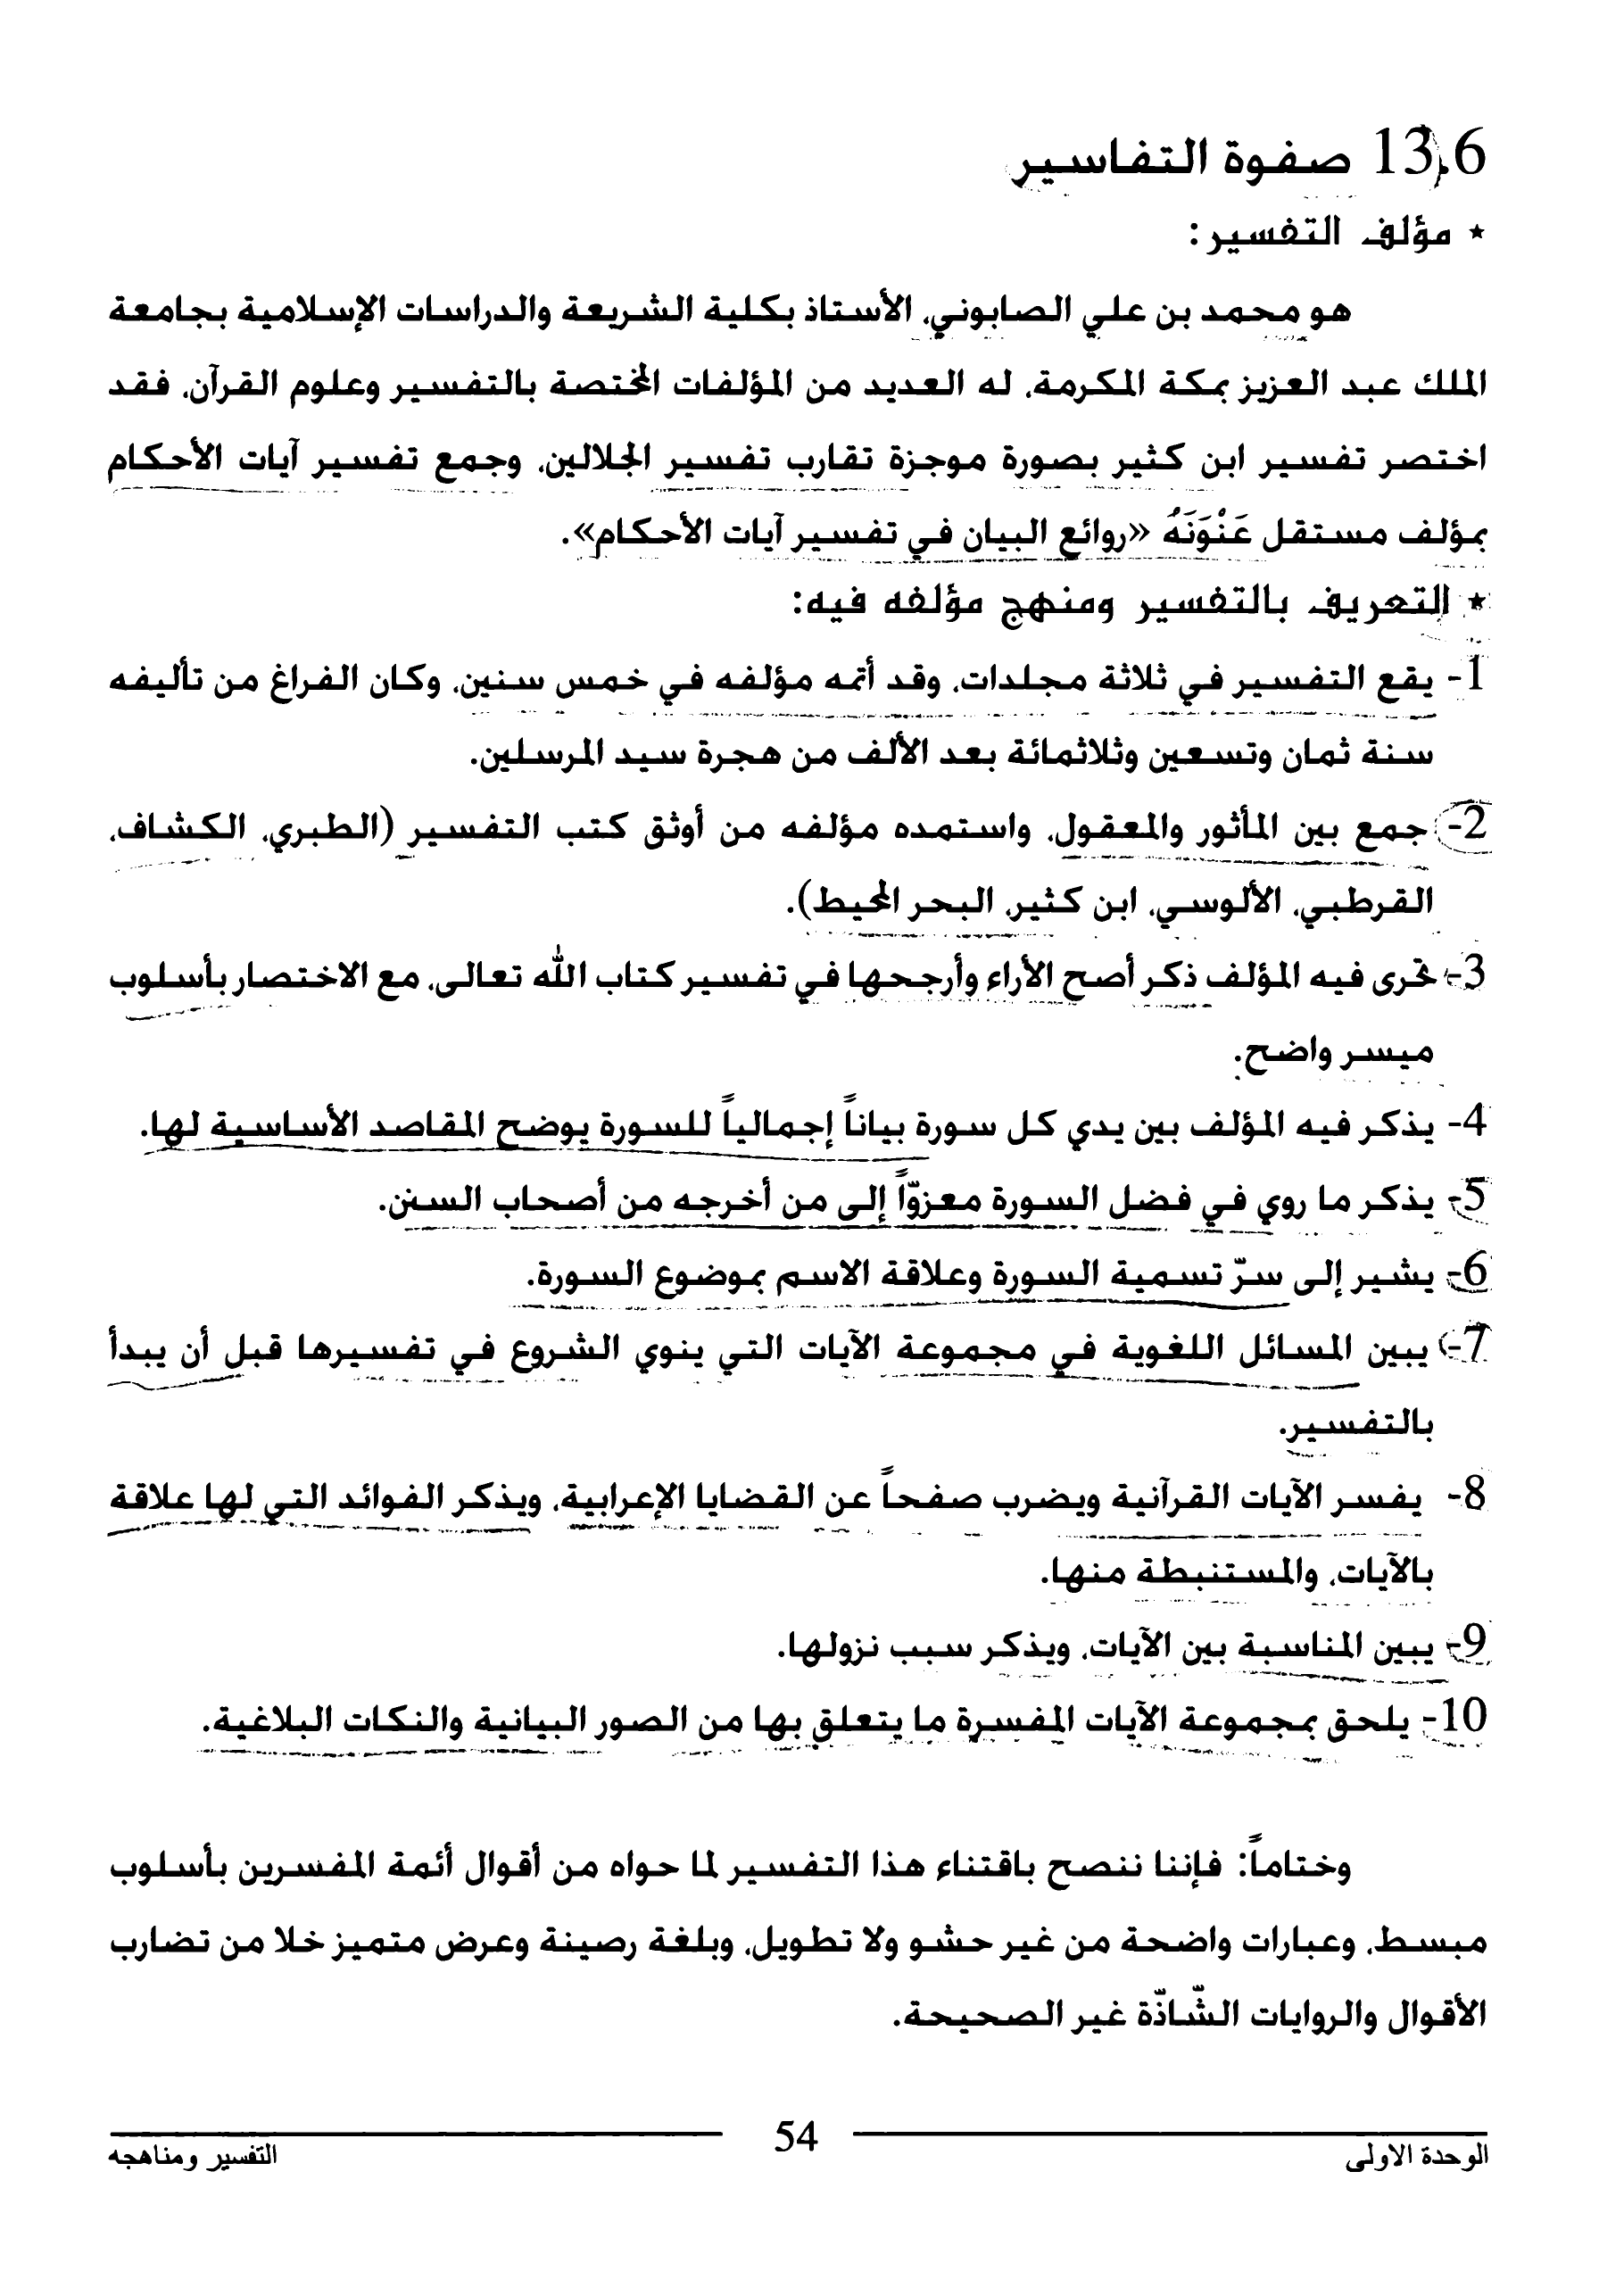 13.6 صفوة التفاسير
* مؤلف التفسير:
هو محمد بن علي الصابوني، الأستاذ بكلية الشريعة والدراسات الإسلامية بجامعة
الملك عبد العزيز بمكة المكرمة، له العديد من المؤلفات المختصة بالتفسير وعلوم القرآن، فقد
اختصر تفسير ابن كثير بصورة موجزة تقارب تفسير الجلالين، وجمع تفسير آيات الأحكام
بمؤلف مستقل عَنْوَنَهُ «روائع البيان في تفسير آيات الأحكام».
* التعريف بالتفسير ومنهج مؤلفه فيه:
1- يقع التفسير في ثلاثة مجلدات، وقد أتمه مؤلفه في خمس سنين، وكان الفراغ من تأليفه
سنة ثمان وتسعين وثلاثمائة بعد الألف من هجرة سيد المرسلين.
2- جمع بين المأثور والمعقول، واستمده مؤلفه من أوثق كتب التفسير (الطبري، الكشاف،
القرطبي، الألوسي، ابن كثير، البحر المحيط).
3- تحرى فيه المؤلف ذكر أصح الأراء وأرجحها في تفسير كتاب الله تعالى، مع الاختصار بأسلوب
ميسر واضح.
4- يذكر فيه المؤلف بين يدي كل سورة بياناً إجمالياً للسورة يوضح المقاصد الأساسية لها.
5- يذكر ما روي في فضل السورة معزوّاً إلى من أخرجه من أصحاب السنن.
6- يشير إلى سرّ تسمية السورة وعلاقة الاسم بموضوع السورة.
7- يبين المسائل اللغوية في مجموعة الآيات التي ينوي الشروع في تفسيرها قبل أن يبدأ
بالتفسير.
8- يفسر الآيات القرآنية ويضرب صفحاً عن القضايا الإعرابية، ويذكر الفوائد التي لها علاقة
بالآيات، والمستنبطة منها.
9- يبين المناسبة بين الآيات، ويذكر سبب نزولها.
10- يلحق بمجموعة الآيات المفسرة ما يتعلق بها من الصور البيانية والنكات البلاغية.
وختاماً: فإننا ننصح باقتناء هذا التفسير لما حواه من أقوال أئمة المفسرين بأسلوب
مبسط، وعبارات واضحة من غير حشو ولا تطويل، وبلغة رصينة وعرض متميز خلا من تضارب
الأقوال والروايات الشّاذّة غير الصحيحة.
الوحدة الاولى
54
التفسير ومناهجه